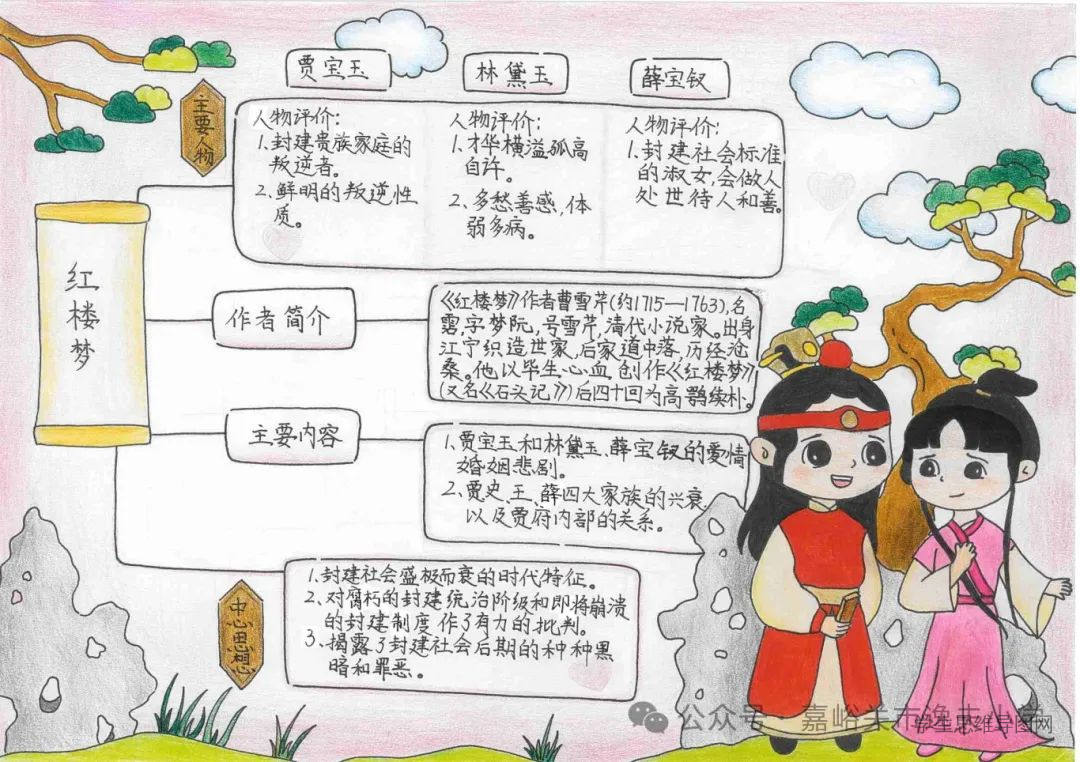 红楼梦
主要人物
贾宝玉
人物评价:
1.封建贵族家庭的
叛逆者。
2.鲜明的叛逆性
质。
林黛玉
人物评价:
1.才华横溢孤高
自许。
2.多愁善感,体
弱多病。
薛宝钗
人物评价:
1.封建社会标准
的淑女,会做人
处世待人和善。
作者简介
《红楼梦》作者曹雪芹(约1715—1763),名
霑,字梦阮,号雪芹,清代小说家。出身
江宁织造世家,后家道中落,历经沧
桑。他以毕生心血创作《红楼梦》
(又名《石头记》)后四十回为高鹗续补。
主要内容
1.贾宝玉和林黛玉、薛宝钗的爱情
婚姻悲剧。
2.贾史、王、薛四大家族的兴衰
以及贾府内部的关系。
中心思想
1.封建社会盛极而衰的时代特征。
2.对腐朽的封建统治阶级和即将崩溃
的封建制度作了有力的批判。
3.揭露了封建社会后期的种种黑
暗和罪恶。
公众号·嘉峪关市逸夫小学
学生思维导图网